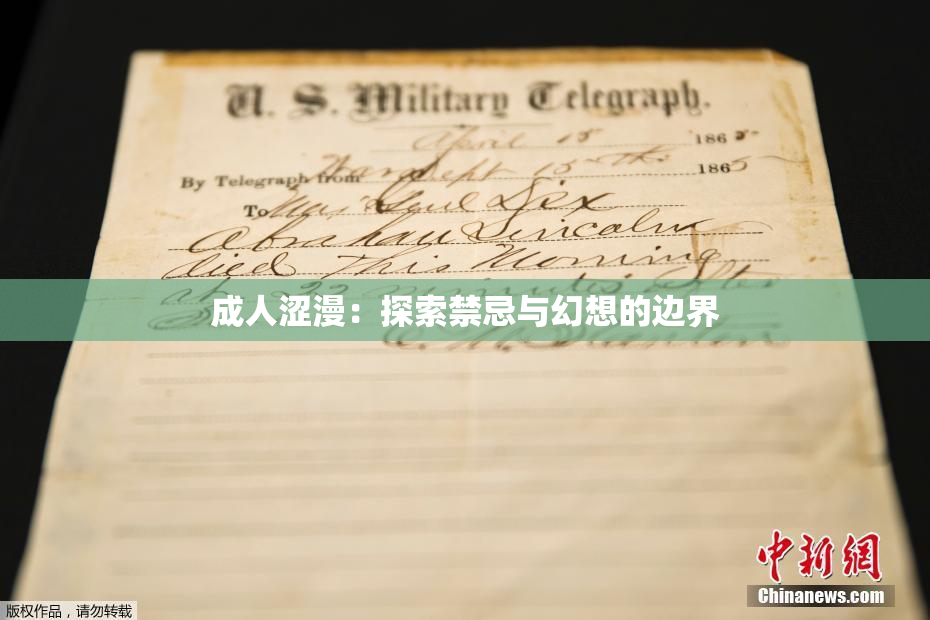 U. S. Military Telegraph.
April 15 1865
By Telegraph from War Dept 15th 1865
To Maj Genl Dix
Abraham Lincoln
died This Morning
at 22 minutes after
成人涩漫：探索禁忌与幻想的边界
中新网
Chinanews.com
版权作品，请勿转载